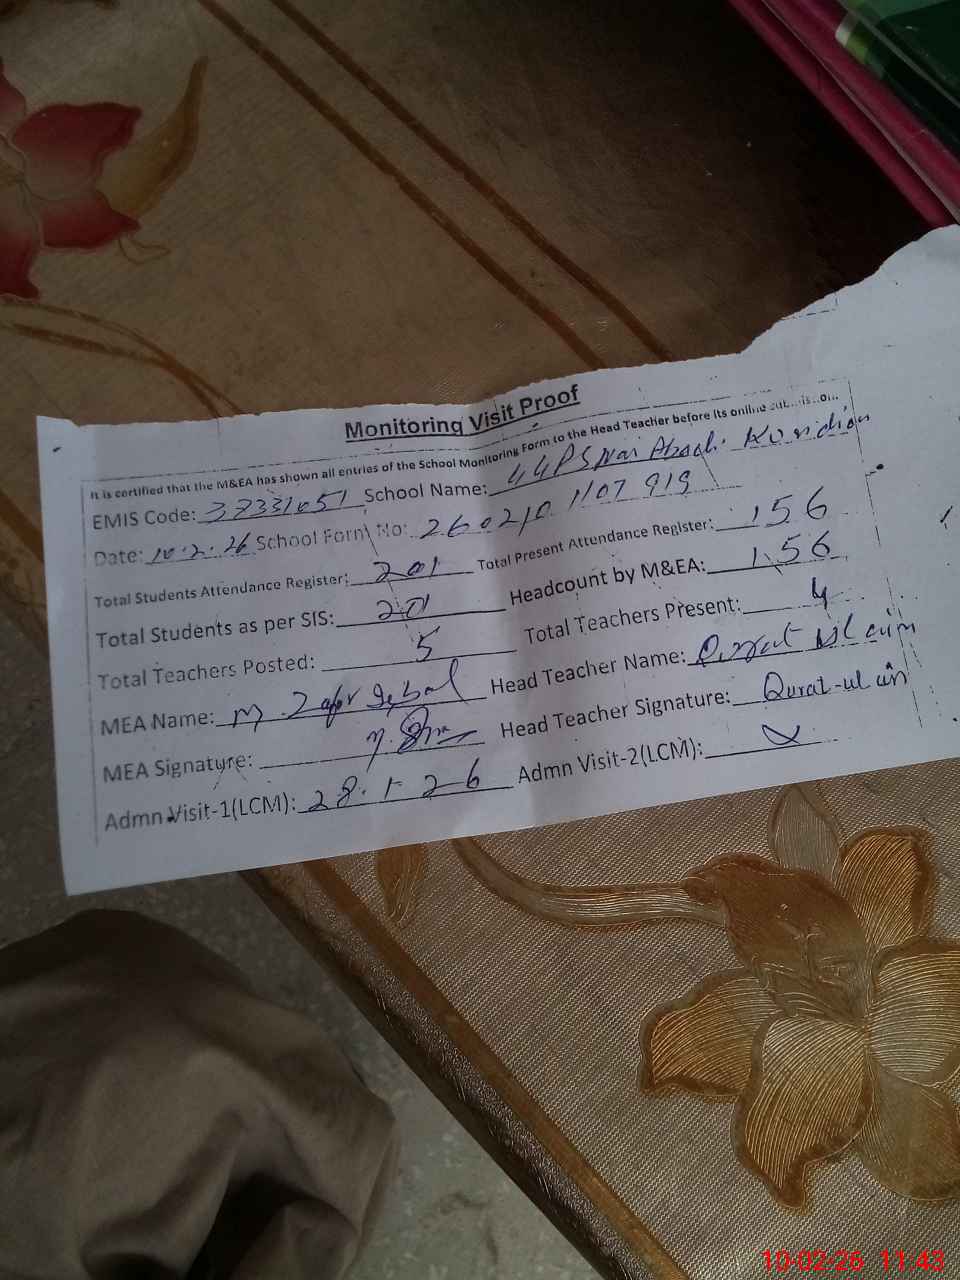 Monitoring Visit Proof
It is certified that the M&EA has shown all entries of the School Monitoring Form to the Head Teacher before its online
EMIS Code: 37331051 School Name: Kundian
Date: 10.2.26 School Form No: 260210 1107 919
Total Students Attendance Register: 201 Total Present Attendance Register: 156
Total Students as per SIS: 201 Headcount by M&EA: 156
Total Teachers Posted: 5 Total Teachers Present: 4
MEA Name: M Zafar Iqbal Head Teacher Name: Qurrat ul ain
MEA Signature: Head Teacher Signature: Qurat-ul ain
Admn Visit-1(LCM): 28.1-26 Admn Visit-2(LCM):
10-02-26 11:43